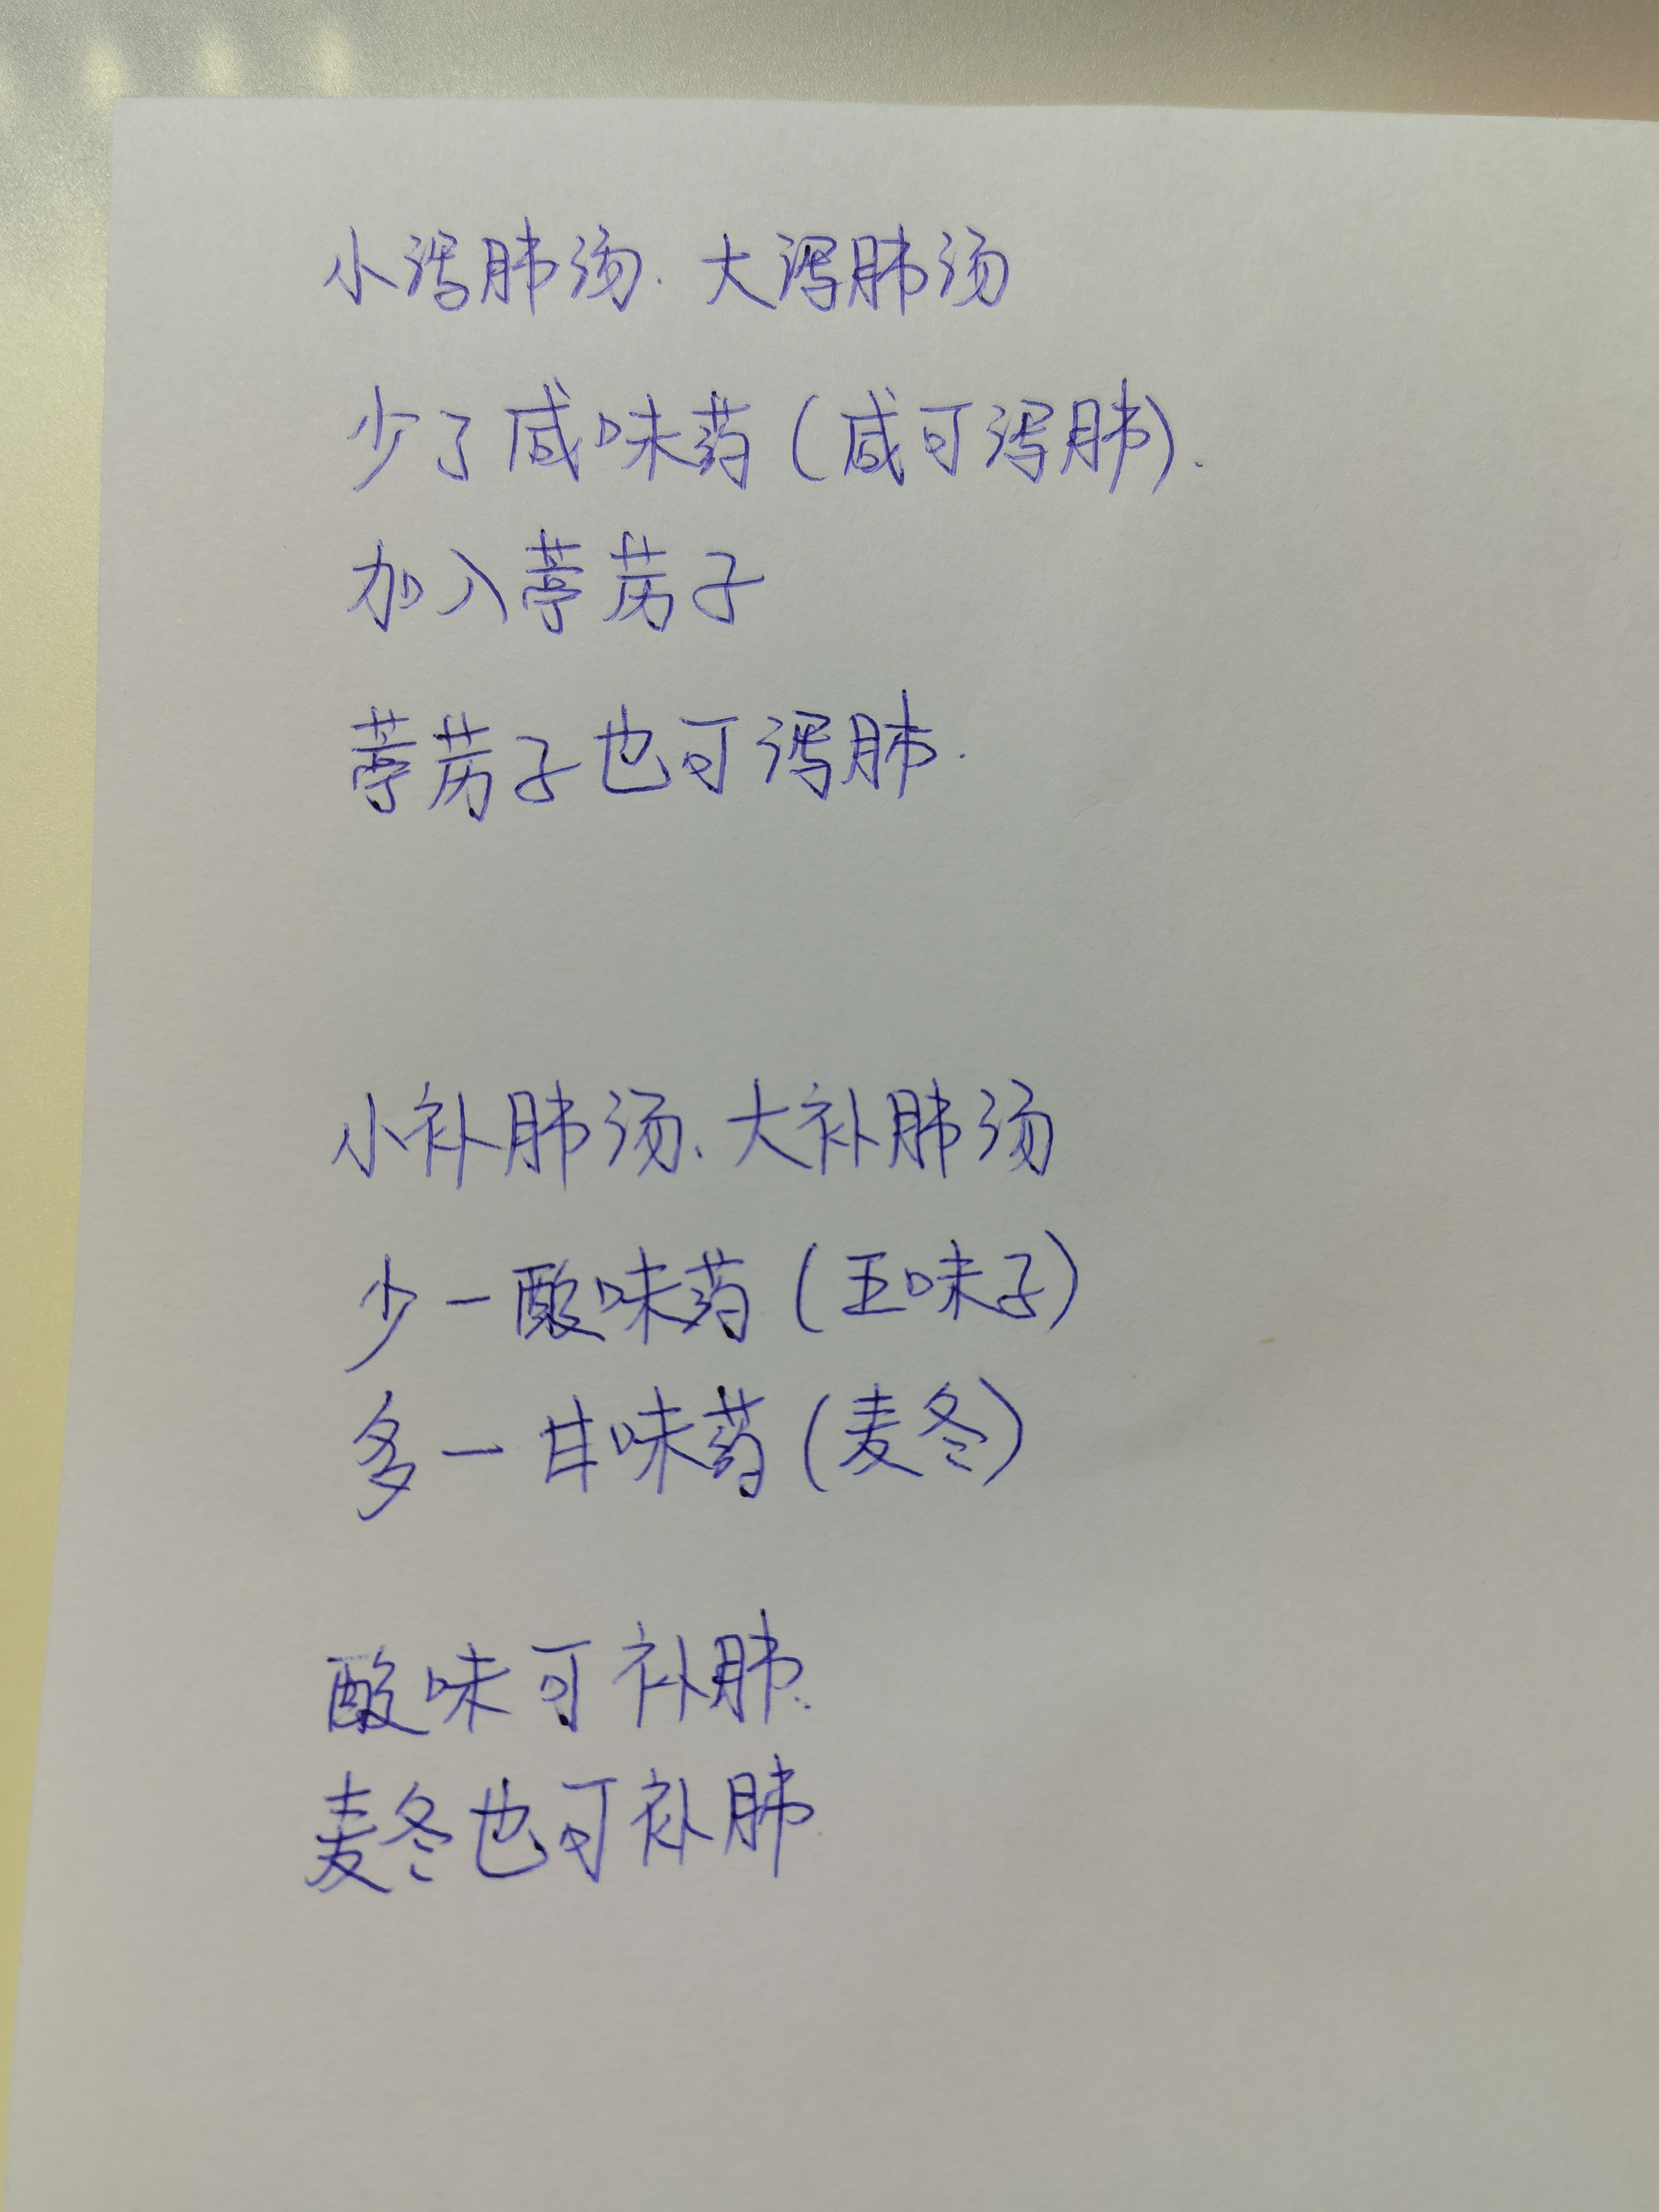 小泻肺汤.大泻肺汤
少了咸味药(咸可泻肺).
加入葶苈子
葶苈子也可泻肺.
小补肺汤、大补肺汤
少一酸味药(五味子)
多一甘味药(麦冬)
酸味可补肺.
麦冬也可补肺